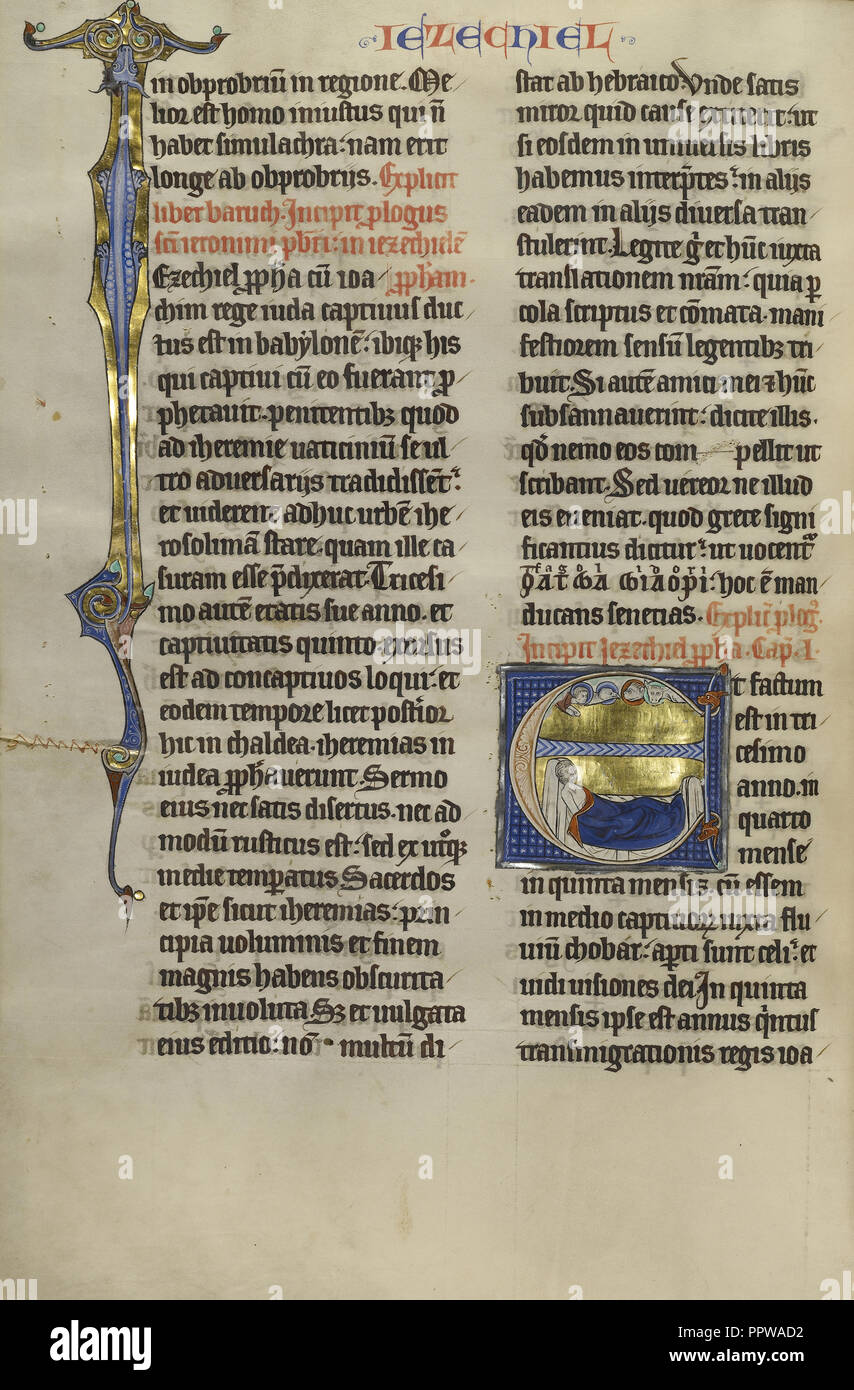 IEZECHIEL
in obprobriū in regione. Me
lior est homo iustus qui ñ
habet simulachra: nam erit
longe ab obprobrijs. Explicit
liber baruch. Incipit plogus
sc̄i ieronimi pbr̄i: in iezechielē
Ezechiel ppħa cū ioa ppħam.
chim rege iuda captiuus duc
tus est in babylonē: ibiqꝫ his
qui captiui cū eo fuerant p
phetauit. penitentibꝫ quod
ad iheremie uaticiniū se ul
tro aduersarijs tradidissent:
et uiderent adhuc urbē ihe
rosolimā stare. quam ille ca
suram esse p̄dixerat. Tricesi
mo autē etatis sue anno. et
captiuitatis quinto exorsus
est ad concaptiuos loqui: et
eodem tempore licet post̄ior
hic in chaldea. iheremias in
iudea ppħauerunt. Sermo
eius nec satis disertus. nec ad
modū rusticus est: sed ex utroqꝫ
medie temperatus Sacerdos
et ip̄e sicut iheremias: prin
cipia uoluminis et finem
magnis habens obscurita
tibꝫ inuoluta. Sꝫ et uulgata
eius editio: nō multū di
stat ab hebraico. Vnde satis
miror quid cause extiterit: ut
si eosdem in uniuersis libris
habemus interp̄tes: in alijs
eadem in alijs diuersa tran
stulerint. Legite g̊ et hūc iuxta
translationem nr̄am: quia p
cola scriptus et cōmata. mani
festiorem sensū legentibꝫ tri
buit. Si autē amici mei ⁊ hūc
subsannauerint: dicite illis.
qd̄ nemo eos com pellit ut
scribant. Sed uereor ne illud
eis eueniat. quod grece signi
ficantius dicitur: ut uocent
hoc ē man
ducans senecias. Explic̄ plog᷒.
Incipit Iezechiel ppħa. Cap. I.
Et factum
est in tri
cesimo
anno. in
quarto
mense
in quinta mensis. cū essem
in medio captiuoꝝ iuxta flu
uiū chobar: apti sunt celi: et
uidi uisiones dei In quinta
mensis ipse est annus qintus
transmigrationis regis ioa
alamy
PPWAD2
www.alamy.com